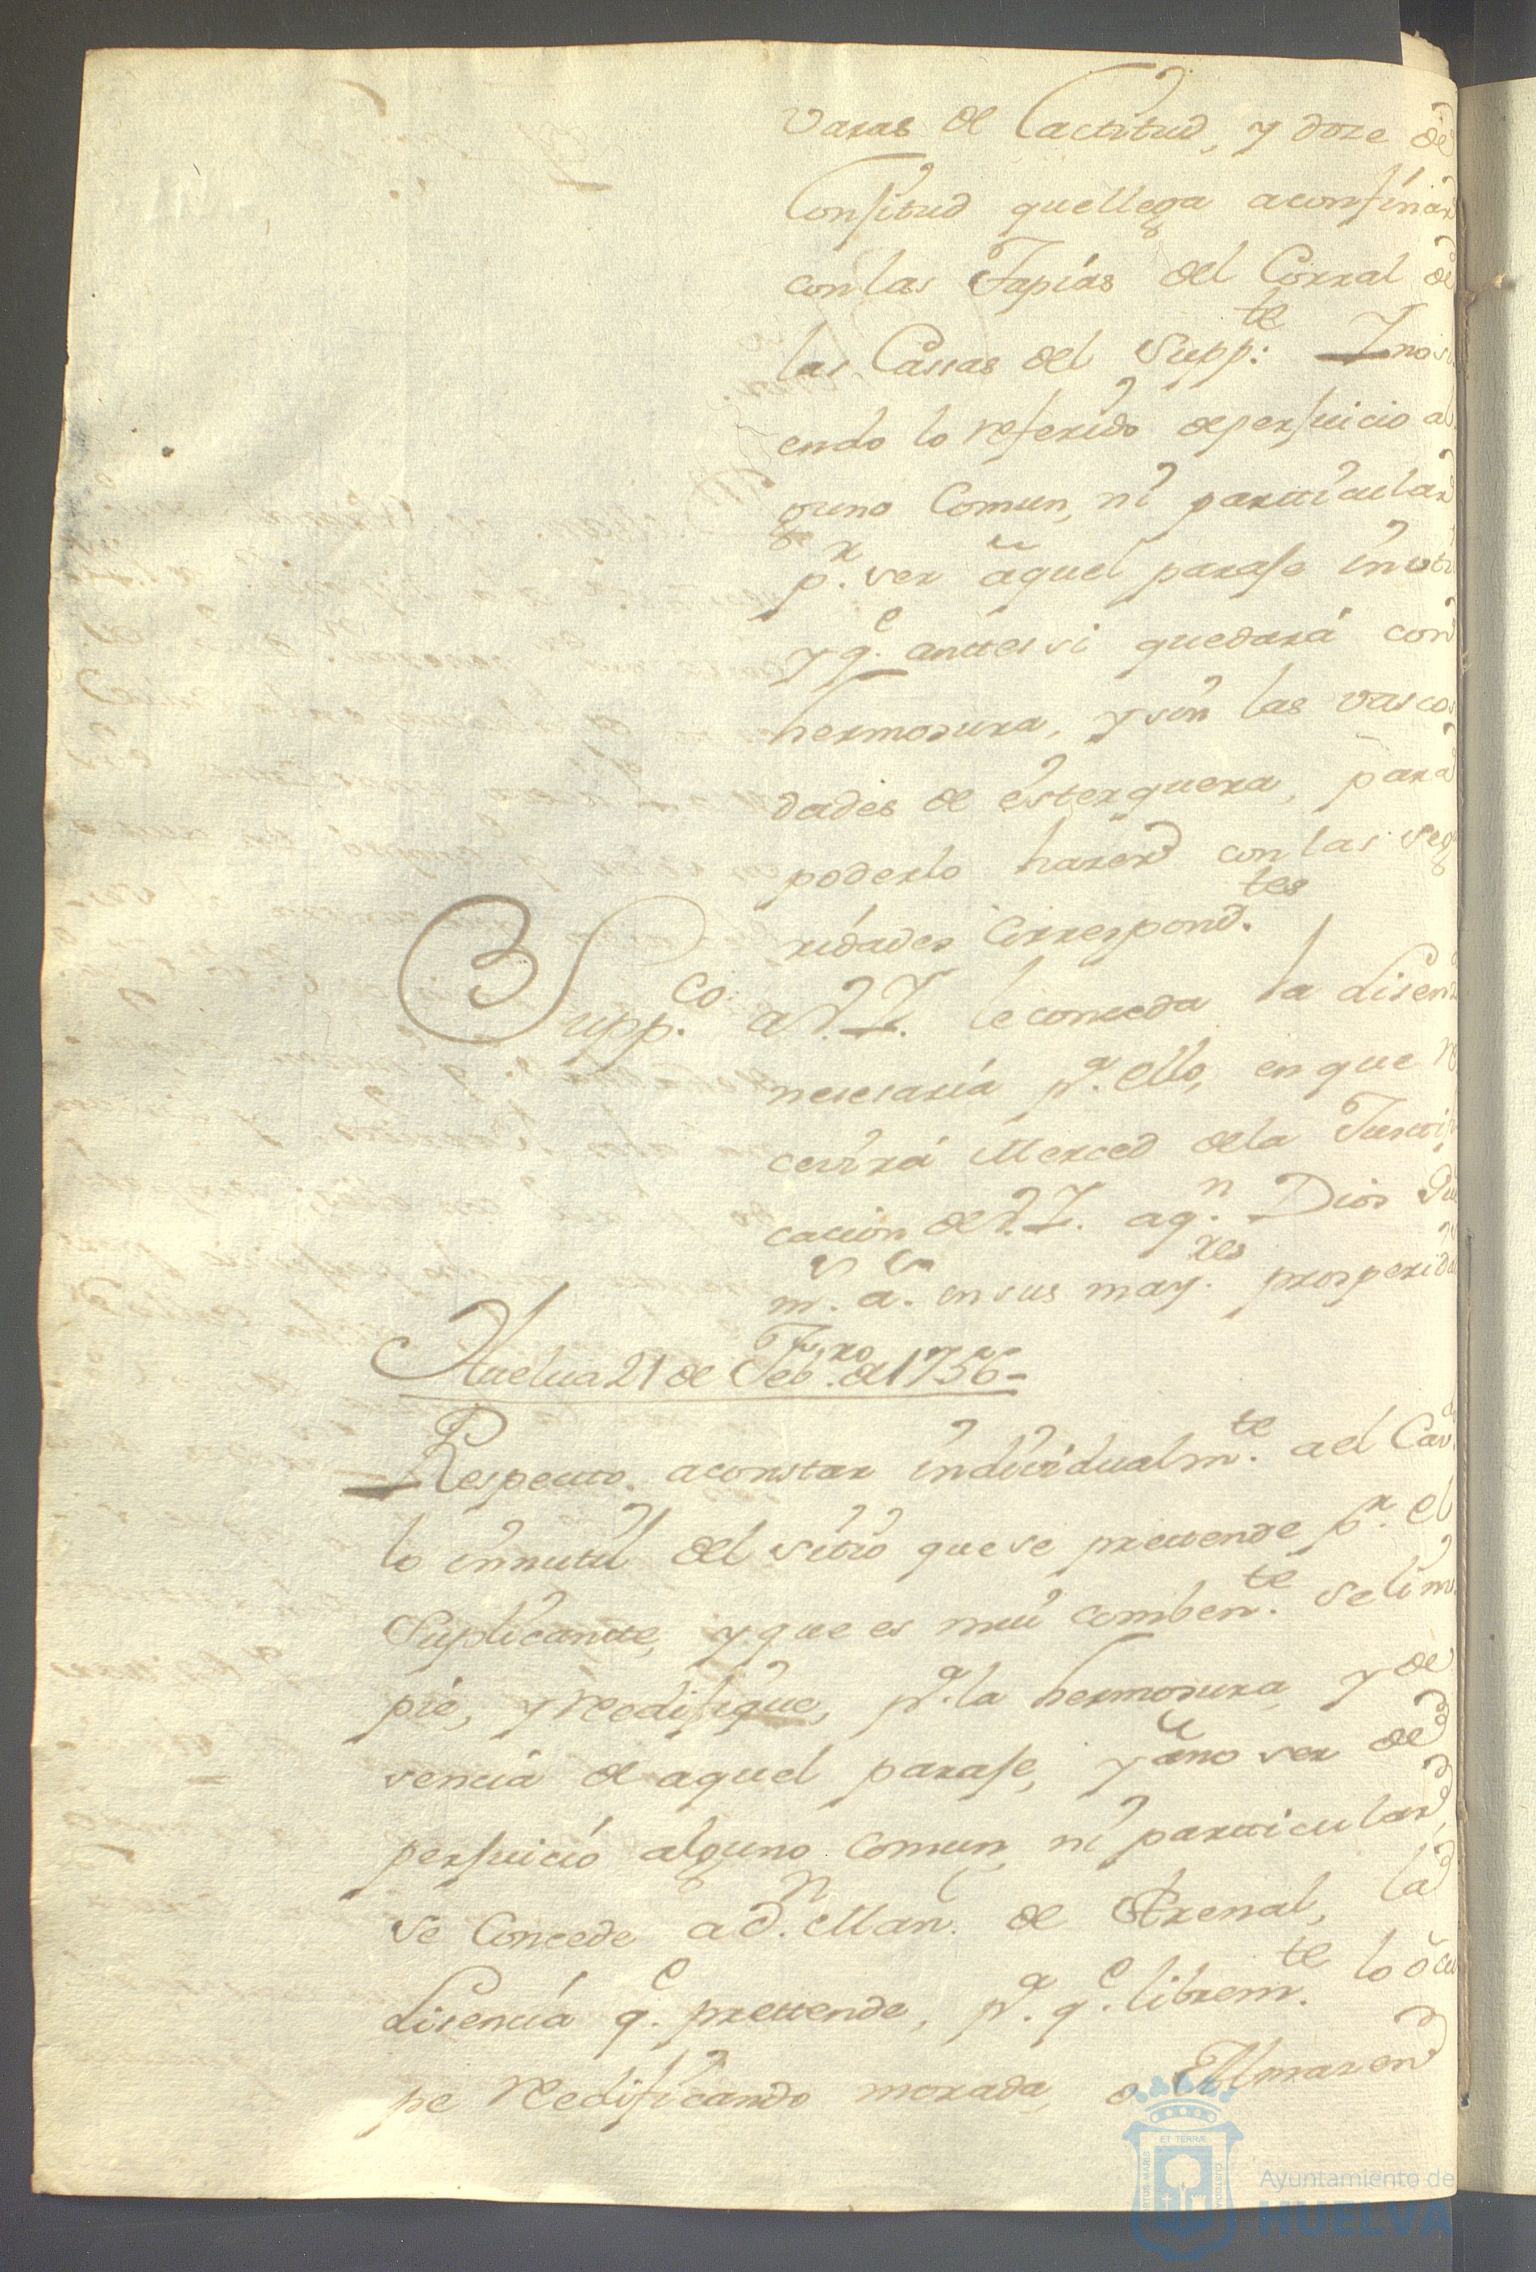 varas de Lactitud, y doze de
Lonjitud quellega aconfinar
conlas Tapias del Corral de
las Cassas del Supp.te Y nosi
endo lo referido deperjuicio al
guno Comun, ni particular
p.r ser aquel paraje inutil
y q.e anttes si quedará con
hermosura, y sin las vascos
dades de esterquera, para
poderlo hazer con las segu
ridades Correspond.tes
Supp.co a V.I. le conceda la Lisen
nesesaria p.a ello, en que re
cevirá Merced dela Justifi
cacion de V.I. aq.n Dios Gu
m.s a.s en sus may.res prosperida
Huelua 21 de Feb.ro de 1756-
Respecto aconstar individualm.te a el Cav.do
lo innutil del sitio que se pretende p.r el
Suplicante, y que es mui comben.te se lim
pie, y redifique, p.a la hermosura, y de
sencia de aquel paraje, y a no ser de
perjuicio alguno comun, ni particular,
se Concede a D.n Man.l de Arenal, la
Lisencia q.e prettende, p.a q.e librem.te lo ocu
pe redificando morada, o Almazen
Ayuntamiento de
HUELVA